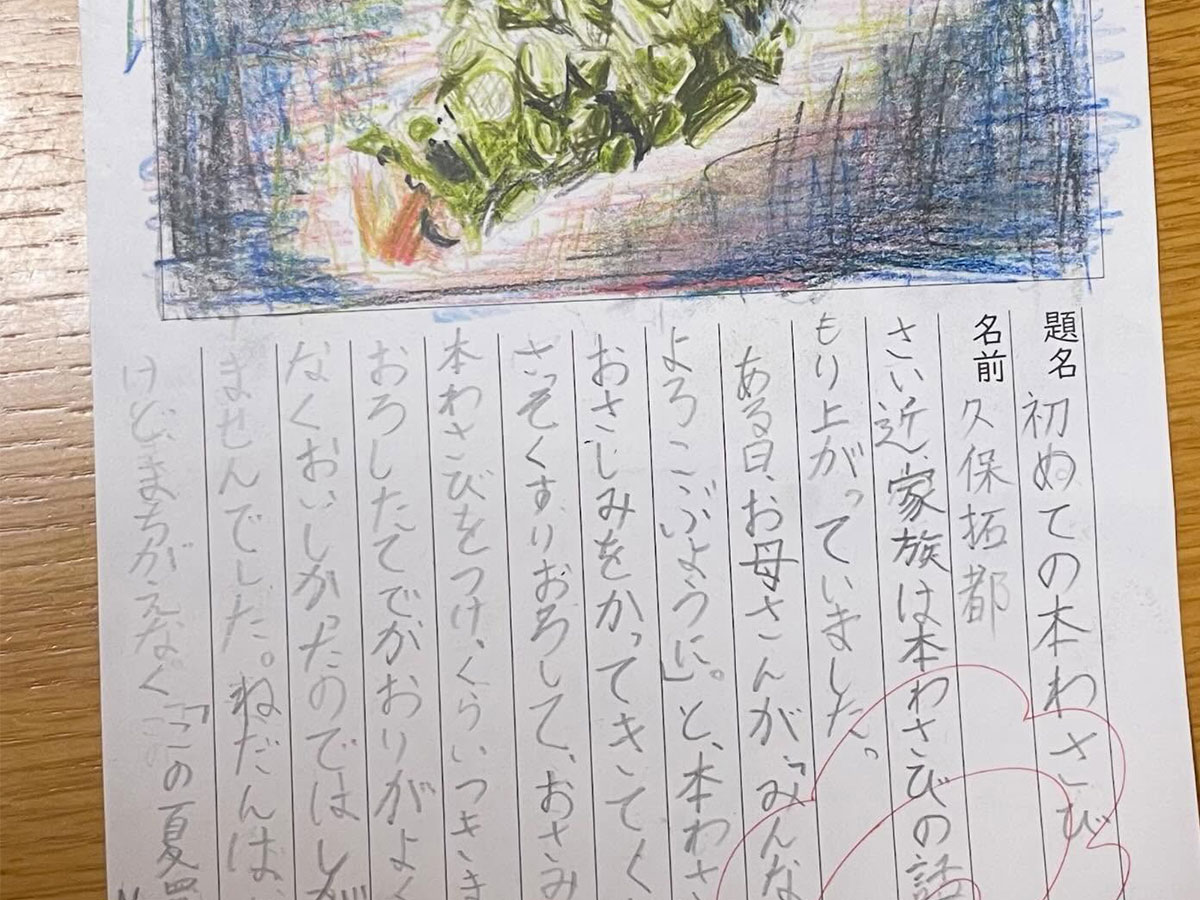 題名 初ぬての本わさび
名前 久保拓都
さい近、家族は本わさびの話
もり上がっていました。
ある日、お母さんが、「みんな
よろこぶように。」と、本わさ
おさしみをかってきてく
さっそくすりおろして、おさみ
本わさびをつけ、くらいつきま
おろしたてでがおりがよく
なくおいしかったのではし
ませんでした。ねだんは、
けど、まちがえなく「この夏